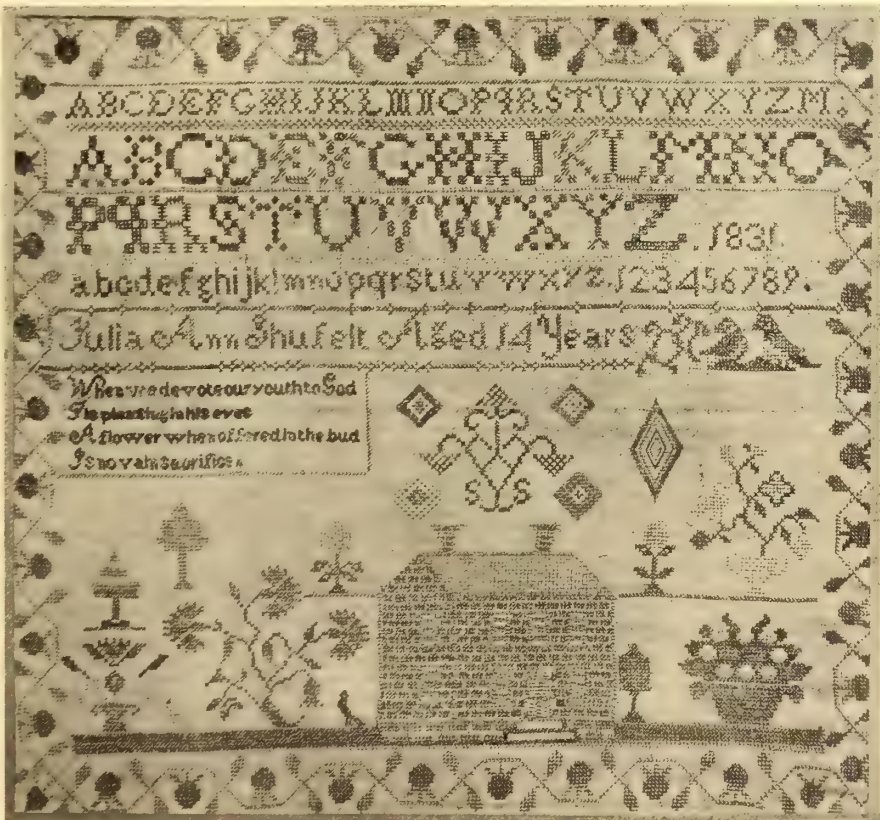 ABCDEFGHIJKLMNOPQRSTUVWXYZM
ABCDEFGHIJKLMNO
PQRSTUVWXYZ. 1831.
abcdefghijklmnopqrstuvwxyz.123456789.
Julia Ann Shufelt Aged 14 Years
When we devote our youth to God
Tis pleasing in his eyes
A flower when offered in the bud
Is no vain sacrifice
S S